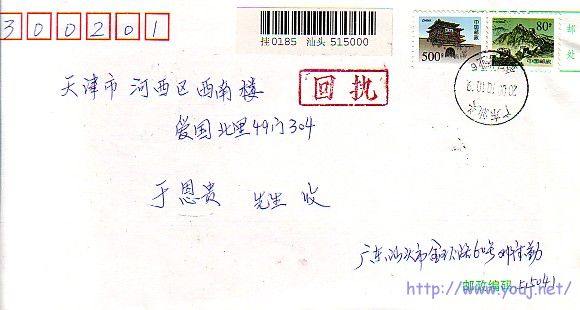 300201
挂0185 汕头 515000
500分
中国邮政
80分
中国邮政
邮
处
回执
天津市 河西区 西南楼
爱国北里49门304
于恩贵 先生 收
广东汕头
广东汕头市金环路60号
邮政编码 515041
http://www.youj.net/